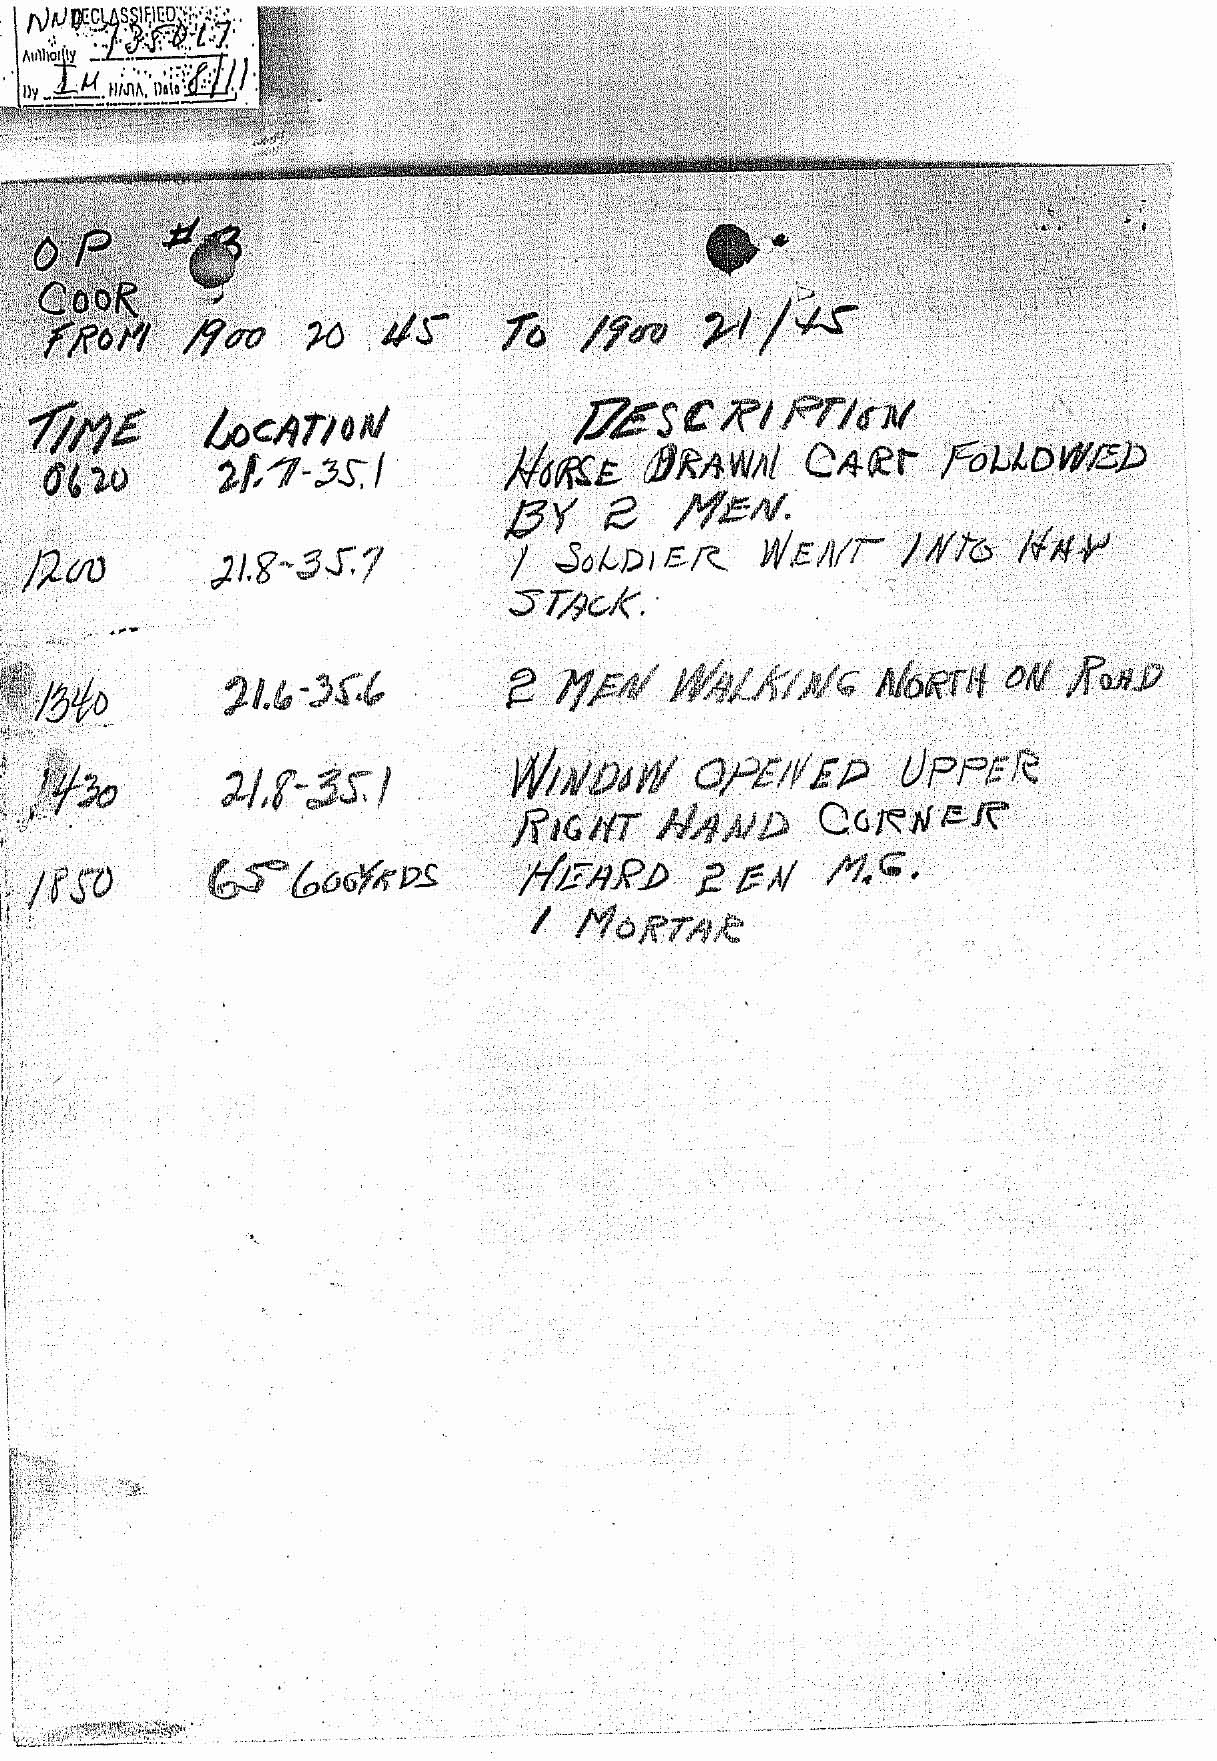 NND DECLASSIFIED
Authority 735017
By IM NARA, Date 8/11
OP #3
COOR
FROM 1900 20 45 TO 1900 21/45
TIME LOCATION DESCRIPTION
0620 21.7-35.1 HORSE DRAWN CART FOLLOWED
BY 2 MEN.
1200 21.8-35.7 1 SOLDIER WENT INTO HAY
STACK.
1340 21.6-35.6 2 MEN WALKING NORTH ON ROAD
1430 21.8-35.1 WINDOW OPENED UPPER
RIGHT HAND CORNER
1850 65° 600YRDS HEARD 2 EN M.G.
1 MORTAR